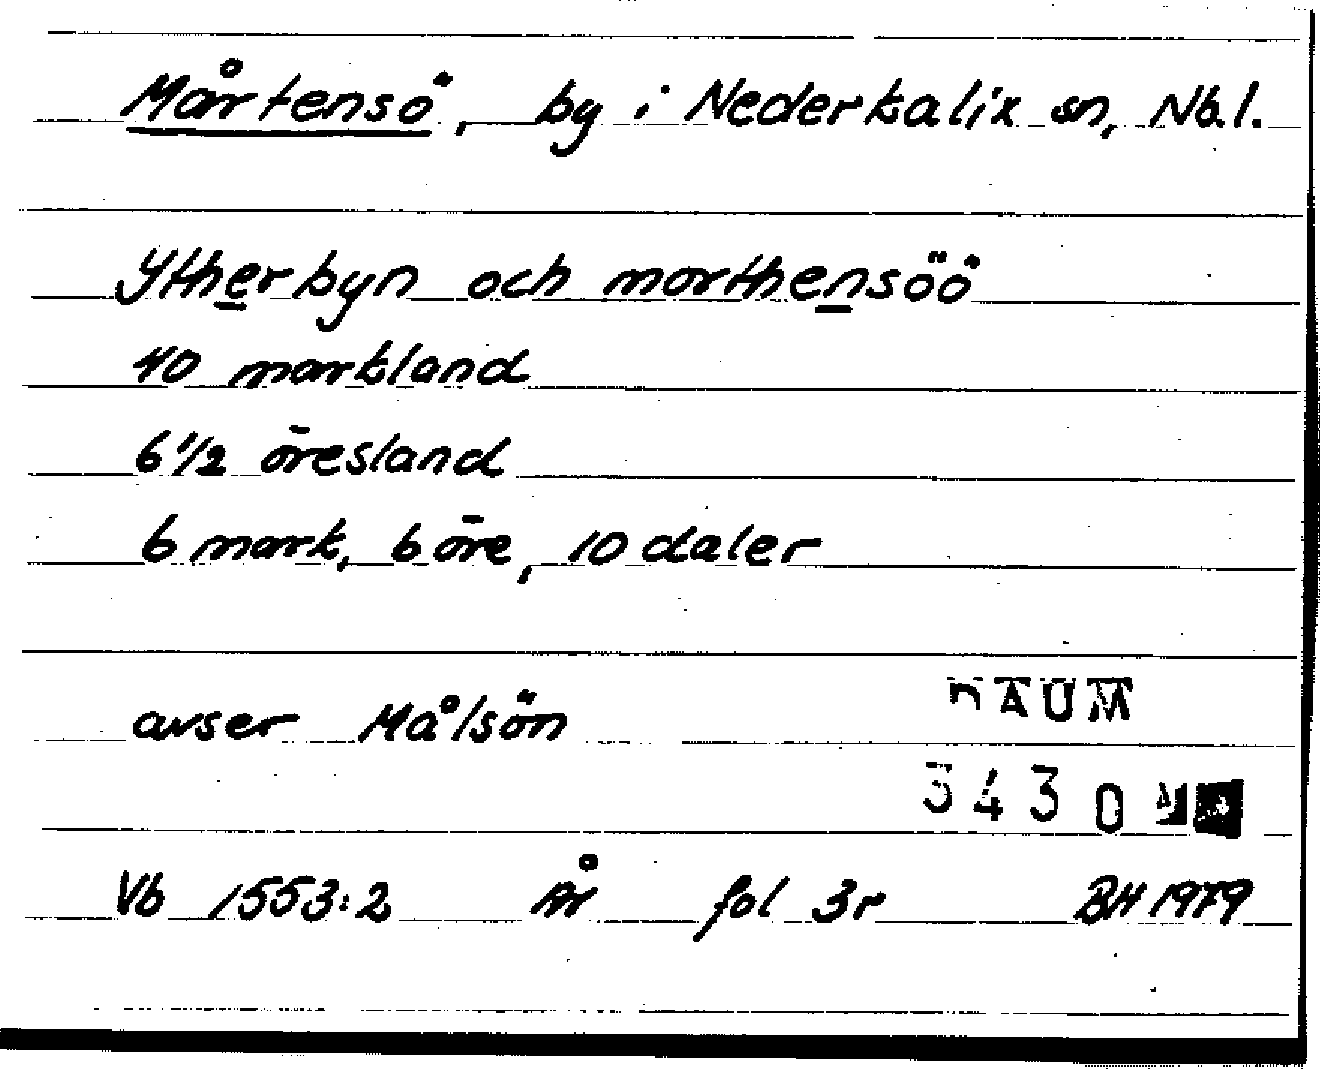 Mårtensö, by i Nederkalix sn, Nb.l.
Ytherbyn och morthensöö
40 markland
6 1/2 öresland
6 mark, 6 öre, 10 daler
avser Målsön
DAUM
3430
Vb 1553:2 År fol 3r BH 1979